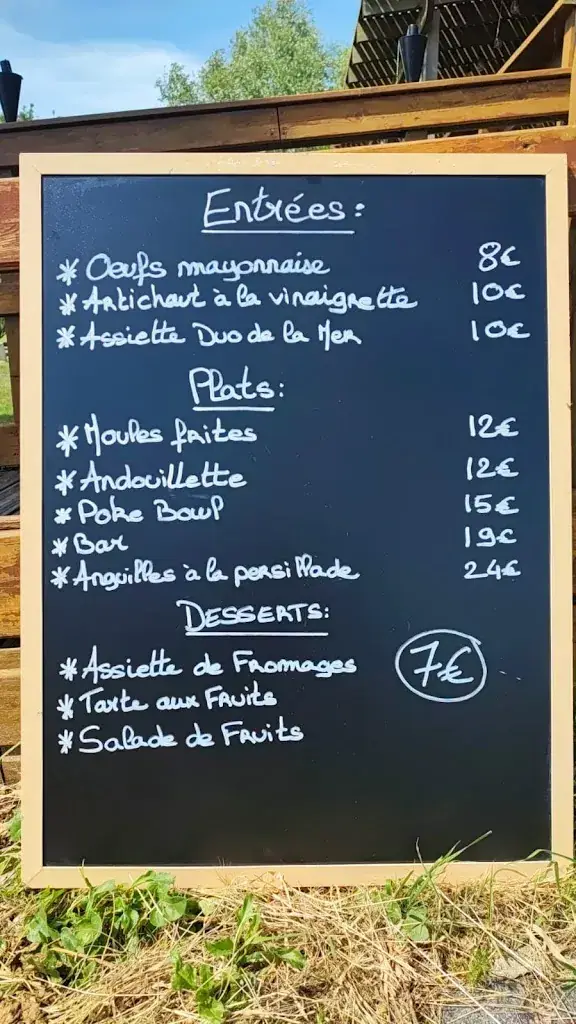 Entrées:
* Oeufs mayonnaise 8€
* Artichaut à la vinaigrette 10€
* Assiette Duo de la Mer 10€
Plats:
* Moules frites 12€
* Andouillette 12€
* Poke Bowl 15€
* Bar 19€
* Anguilles à la persillade 24€
DESSERTS:
* Assiette de Fromages 7€
* Tarte aux Fruits
* Salade de Fruits